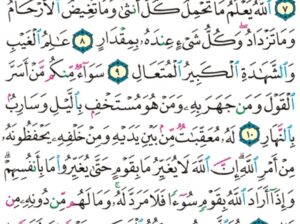 ٧ ٱللَّهُ يَعْلَمُ مَا تَحْمِلُ كُلُّ أُنثَىٰ وَمَا تَغِيضُ ٱلْأَرْحَامُ
وَمَا تَزْدَادُ ۖ وَكُلُّ شَىْءٍ عِندَهُۥ بِمِقْدَارٍ ٨ عَـٰلِمُ ٱلْغَيْبِ
وَٱلشَّهَـٰدَةِ ٱلْكَبِيرُ ٱلْمُتَعَالِ ٩ سَوَآءٌ مِّنكُم مَّنْ أَسَرَّ
ٱلْقَوْلَ وَمَن جَهَرَ بِهِۦ وَمَنْ هُوَ مُسْتَخْفٍۭ بِٱلَّيْلِ وَسَارِبٌۢ
بِٱلنَّهَارِ ١٠ لَهُۥ مُعَقِّبَـٰتٌ مِّنۢ بَيْنِ يَدَيْهِ وَمِنْ خَلْفِهِۦ يَحْفَظُونَهُۥ
مِنْ أَمْرِ ٱللَّهِ ۗ إِنَّ ٱللَّهَ لَا يُغَيِّرُ مَا بِقَوْمٍ حَتَّىٰ يُغَيِّرُوا۟ مَا بِأَنفُسِهِمْ ۗ
وَإِذَآ أَرَادَ ٱللَّهُ بِقَوْمٍ سُوٓءًا فَلَا مَرَدَّ لَهُۥ ۚ وَمَا لَهُم مِّن دُونِهِۦ مِن